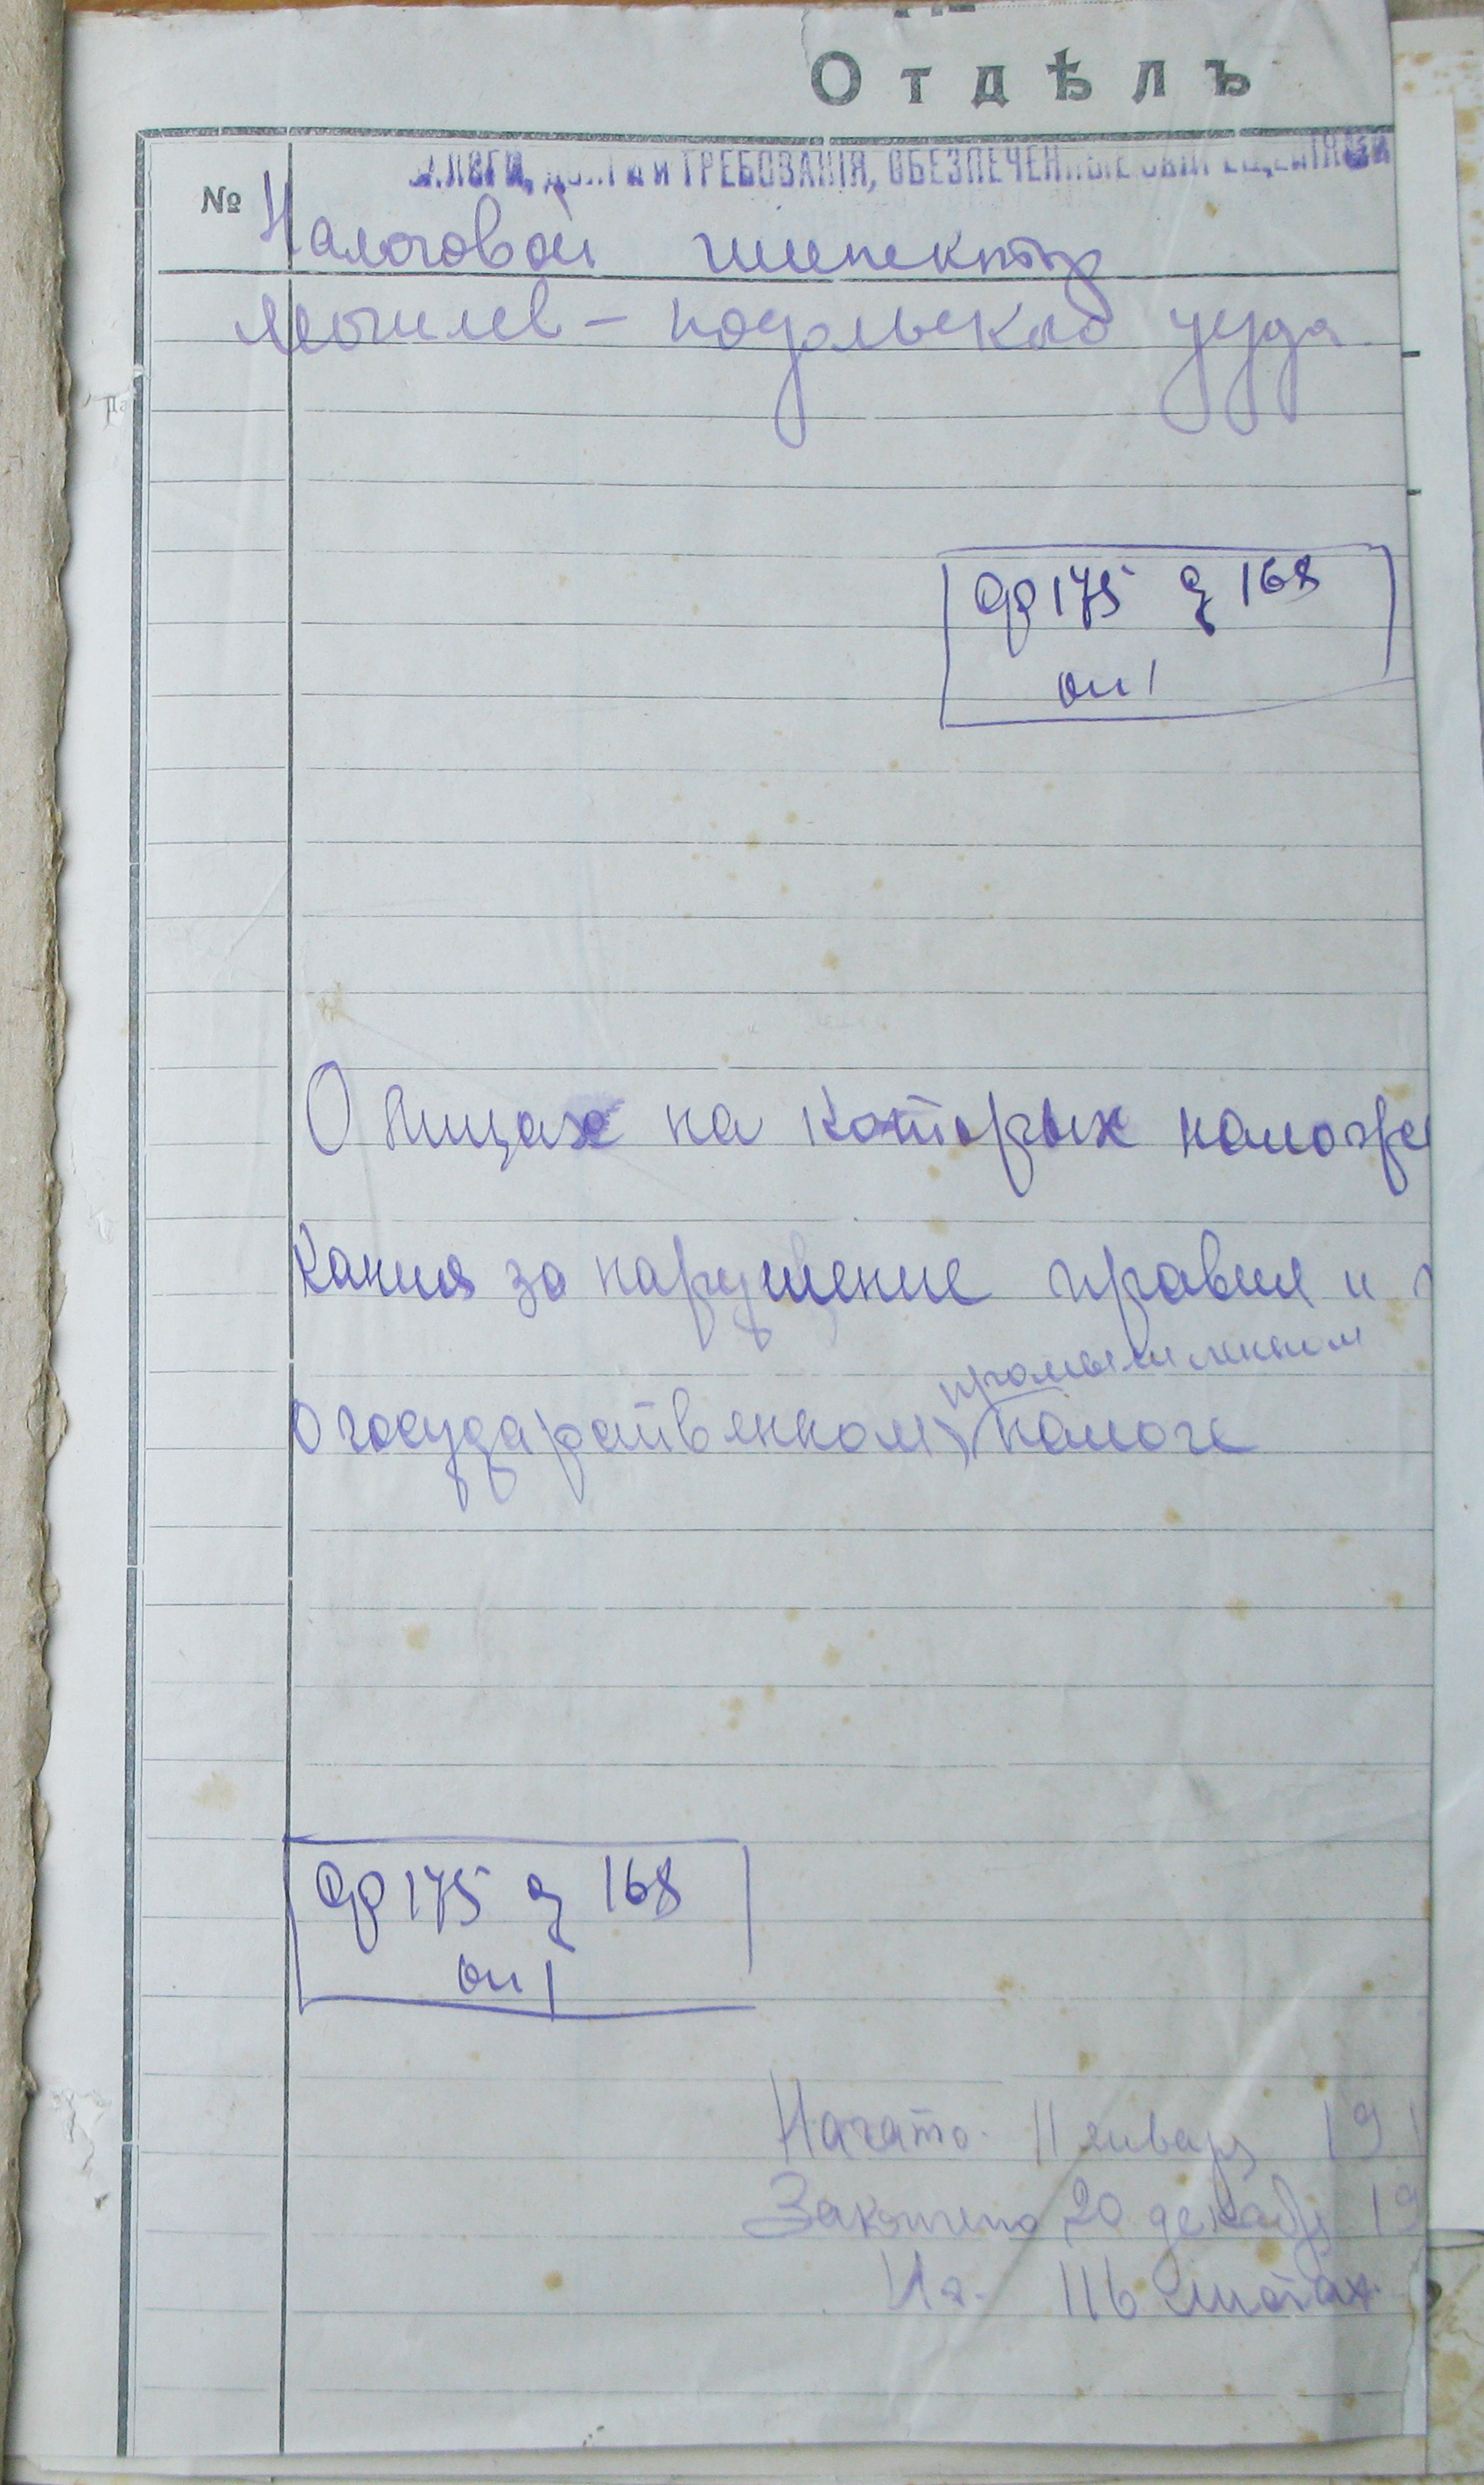 Отдѣлъ
ТРЕБОВАНІЯ, ОБЕЗПЕЧЕННЫЕ
№
Налоговой инспектор
Могилев - подольского уезда
ф 175 д 168
оп 1
О лицах на которых наложе
кания за нарушение правил и
промышленном
о государственном налоге
ф 175 д 168
оп 1
Начато 11 января 191
Закончено 20 декабр 19
На 116 листах.